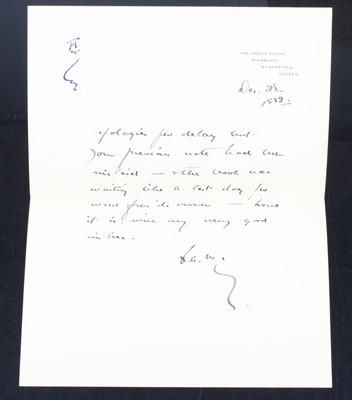 THE COURT HOUSE,
Dec. 28
1932.
apologies for delay but
your previous note had been
mislaid — & the book was
waiting like a lost dog for
word from its owner — here
it is: with my very good
wishes.